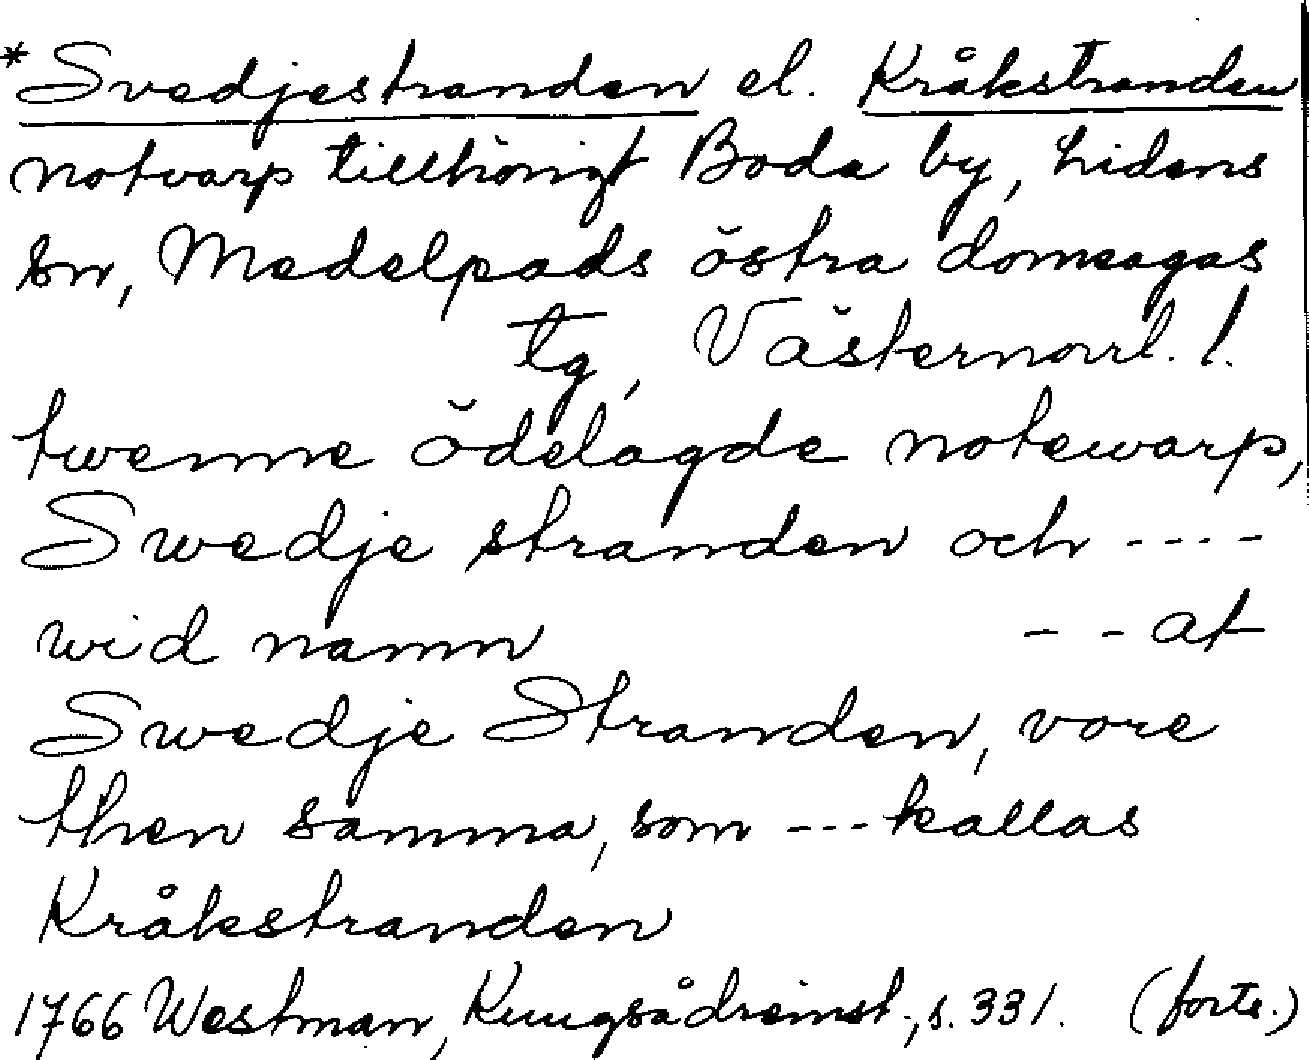 *Svedjestranden el. Kråkstranden
notvarp tillhörigt Boda by, Lidens
sn, Medelpads östra domsagas
tg, Västernorrl. l.
twenne ödelagde notewarp,
Swedje stranden och ----
wid namn -- at
Swedje Stranden, vore
then samma, som --- kallas
Kråkstranden
1766 Westman, Kungsådreinst., s. 331. (forts.)